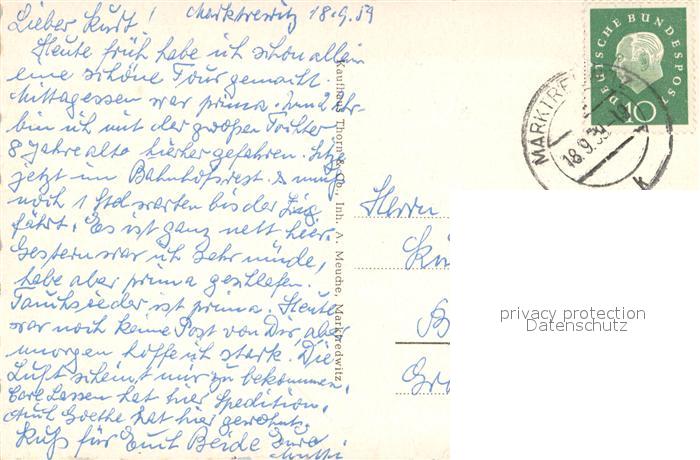 Lieber Kurt! Marktrewitz 18.9.59
Heute früh habe ich schon allein
eine schöne Tour gemacht.
Mittagessen war prima. Um 2 Uhr
bin ich mit der großen Tochter
8 Jahre alt hierher gefahren. Sitze
jetzt im Bahnhofsrest. & muß
noch 1 Std warten bis der Zug
fährt. Es ist ganz nett hier.
Gestern war ich sehr müde,
habe aber prima geschlafen.
Tauchsieder ist prima. Heute
war noch keine Post von Dir, aber
morgen hoffe ich stark. Die
Luft scheint mir zu bekommen.
Carl Lassen hat hier Spedition.
Auch Goethe hat hier gewohnt.
Kuß für Euch Beide Eure
Mutti
Kaufhaus Thorn & Co., Inh. A. Meuche, Marktredwitz
DEUTSCHE BUNDESPOST
10
MARKTRE
18.9.59
k
Herrn
privacy protection
Datenschutz